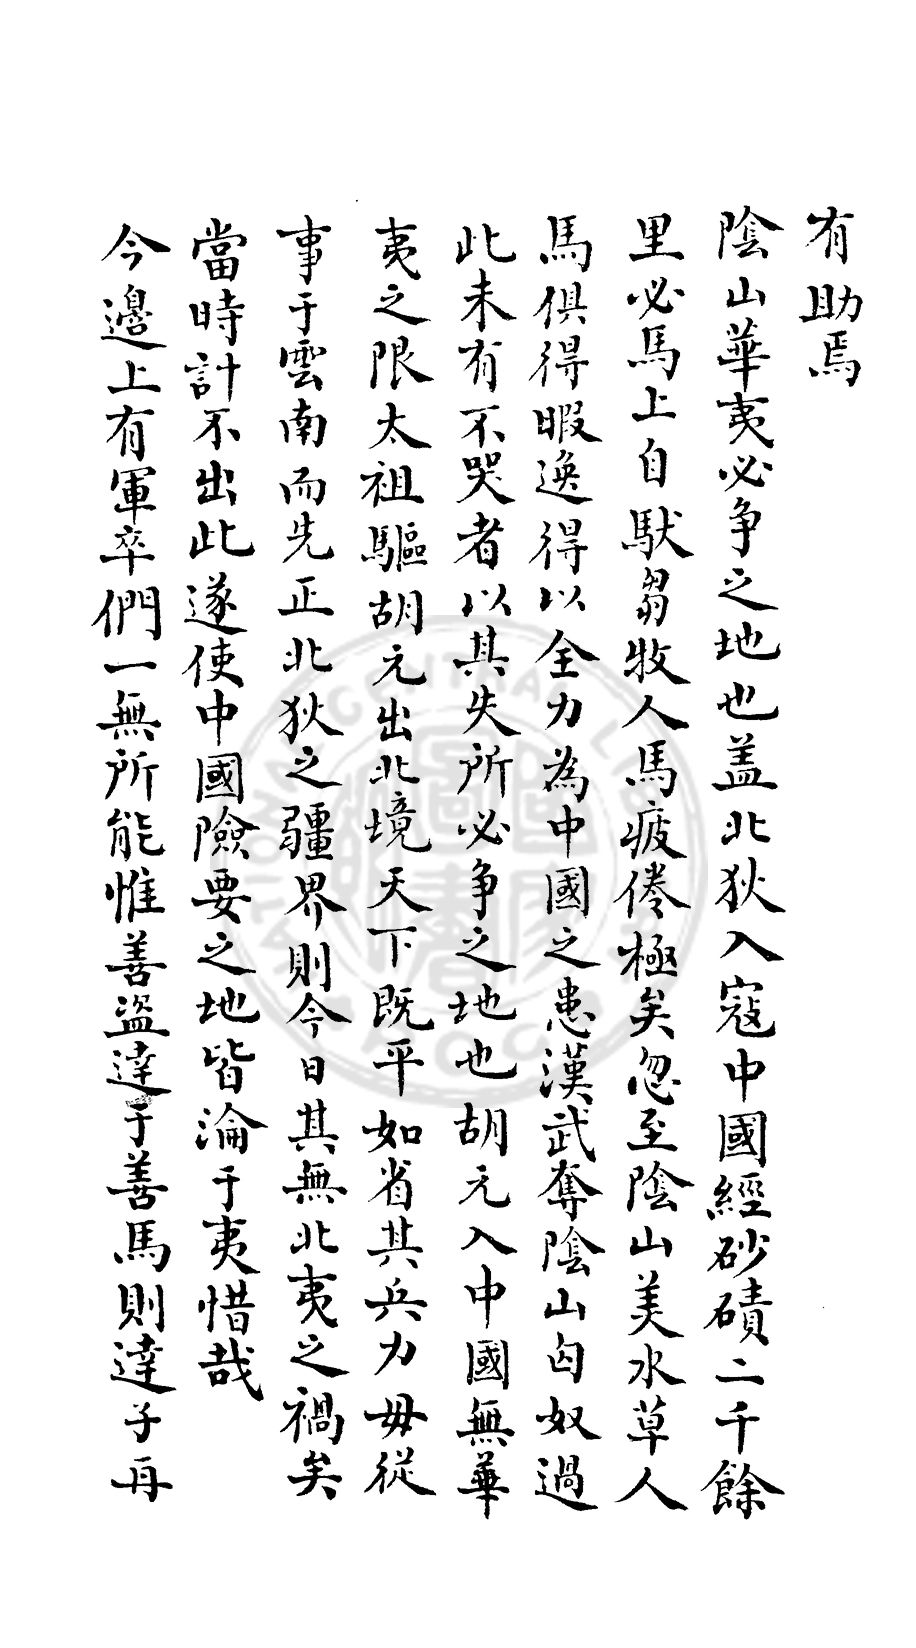 有助焉
陰山華夷必争之地也盖北狄入寇中國經砂磧二千餘
里必馬上自馱芻牧人馬疲倦極矣忽至陰山美水草人
馬俱得暇逸得以全力為中國之患漢武奪陰山匈奴過
此未有不哭者以其失所必争之地也胡元入中國無華
夷之限太祖驅胡元出北境天下既平如省其兵力毋從
事于雲南而先正北狄之疆界則今日其無北夷之禍矣
當時計不出此遂使中國險要之地皆淪于夷惜哉
今邊上有軍卒們一無所能惟善盜達于善馬則達子再